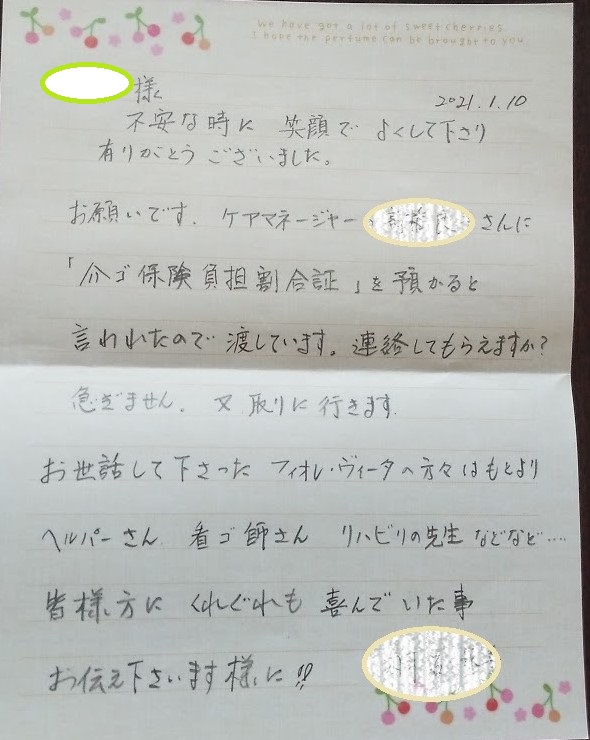 We have got a lot of sweet cherries.
I hope the perfume can be brought to you
様
2021.1.10
不安な時に 笑顔で よくして下さり
有りがとうございました。
お願いです. ケアマネージャー さんに
「介ゴ保険負担割合証」を預かると
言われたので渡しています。連絡してもらえますか?
急ぎません. 又取りに行きます.
お世話して下さった フィオレ・ヴィータの方々はもとより
ヘルパーさん 看ゴ師さん リハビリの先生などなど....
皆様方に くれぐれも 喜んでいた事
お伝え下さいます様に!!